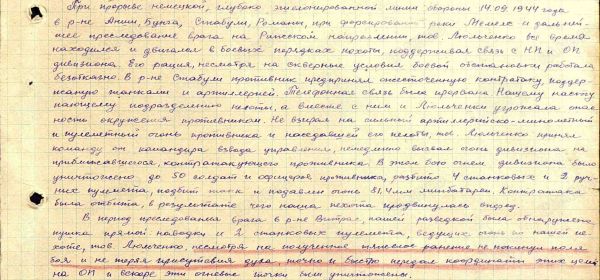 При прорыве немецкой, глубоко эшелонированной линии обороны 14.09.1944 года
в р-не Анши, Бунга, Стабули, Романы, при форсировании реки Мемеле и дальней-
шее преследование врага на Рижском направлении, тов. Люльченко всё время
находился и двигался в боевых порядках пехоты, поддерживая связь с НП и ОП
дивизиона. Его рация, несмотря на скверные условия боевой обстановки работала
безотказно. В р-не Стабули противник предпринял ожесточенную контратаку, поддер
жанную танками и артиллерией. Телефонная связь была прервана. Нашему насту
пающему подразделению пехоты, а вместе с ним и Люльченко угрожала опас
ность окружения противником. Не взирая на сильный артиллерийско-минометный
и пулеметный огонь противника и наседавшей его пехоты, тов. Люльченко принял
команду от командира взвода управления, немедленно вызвал огонь дивизиона по
приближавшегося, контратакующего противника. В этом бою огнем дивизиона было
уничтожено до 50 солдат и офицеров противника, разбито 4 станковых и 2 руч-
ных пулемета, подбит танк и подавлен огонь 81,4 мм минбатареи. Контратака
была отбита, в результате чего наша пехота продвинулась вперед.
В период преследования врага в р-не Витрас, нашей разведкой была обнаружена
пушка прямой наводки и 2 станковых пулемета, ведущих огонь по нашей пе-
хоте, тов. Люльченко, несмотря на полученное тяжелое ранение, не покинул поле
боя и не теряя присутствия духа, точно и быстро передал координаты этих целей
на ОП и вскоре эти огневые точки были уничтожены.